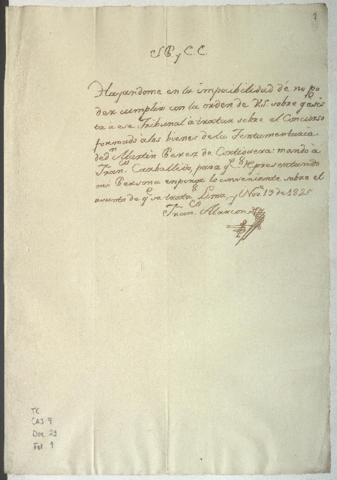 1
S P y C. C.
Hayandome en la imposibilidad de no po
der cumplir con la orden de V.S. sobre q.e asis
ta a ese Tribunal á tratar sobre el Concurso
formado á los bienes de la Testamentaria
de d.n Martin Perez de Cortiguera: mando á
Fran.co Caraballeda, para q.e representando
mi Persona esponga lo conveniente sobre el
asunto de q.e se trata. Lima, y Nov.e 19 de 1825
Fran.co Alarcon
TC
CAJ 9
Doc. 29
Fol. 1